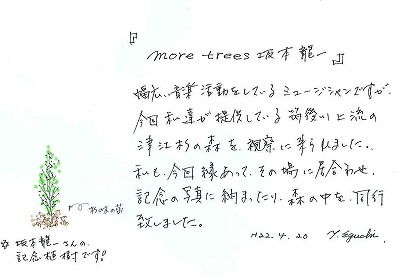 『more trees 坂本龍一』
幅広い音楽活動をしているミュージシャンですが、
今回私達が提供している筑後川上流の
津江杉の森を、視察に来られました。
私も、今回縁あって、その場に居合わせ、
記念の写真に納まったり、森の中を、同行
致しました。
H22.4.20 Y.Eguchi
杉の木の苗
☆ 坂本龍一さんの、
記念植樹です!